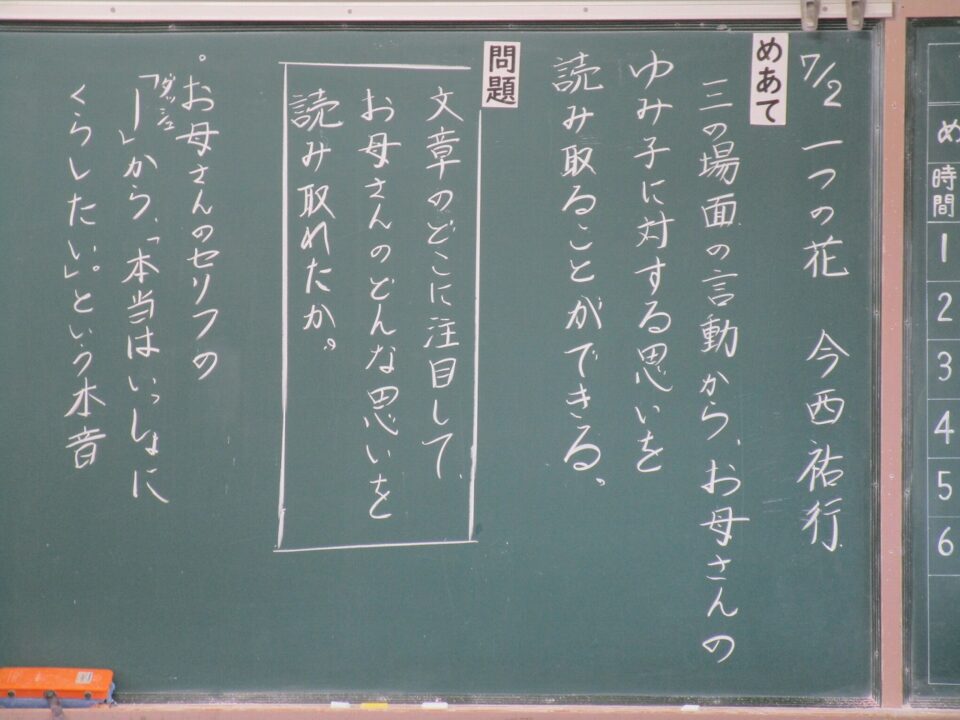 7/2 一つの花 今西祐行
めあて
三の場面の言動から、お母さんの
ゆみ子に対する思いを
読み取ることができる。
問題
文章のどこに注目して、
お母さんのどんな思いを
読み取れたか。
・お母さんのセリフの
「ー」から、「本当はいっしょに
ダッシュ
くらしたい。」という本音
め
時間
1
2
3
4
5
6